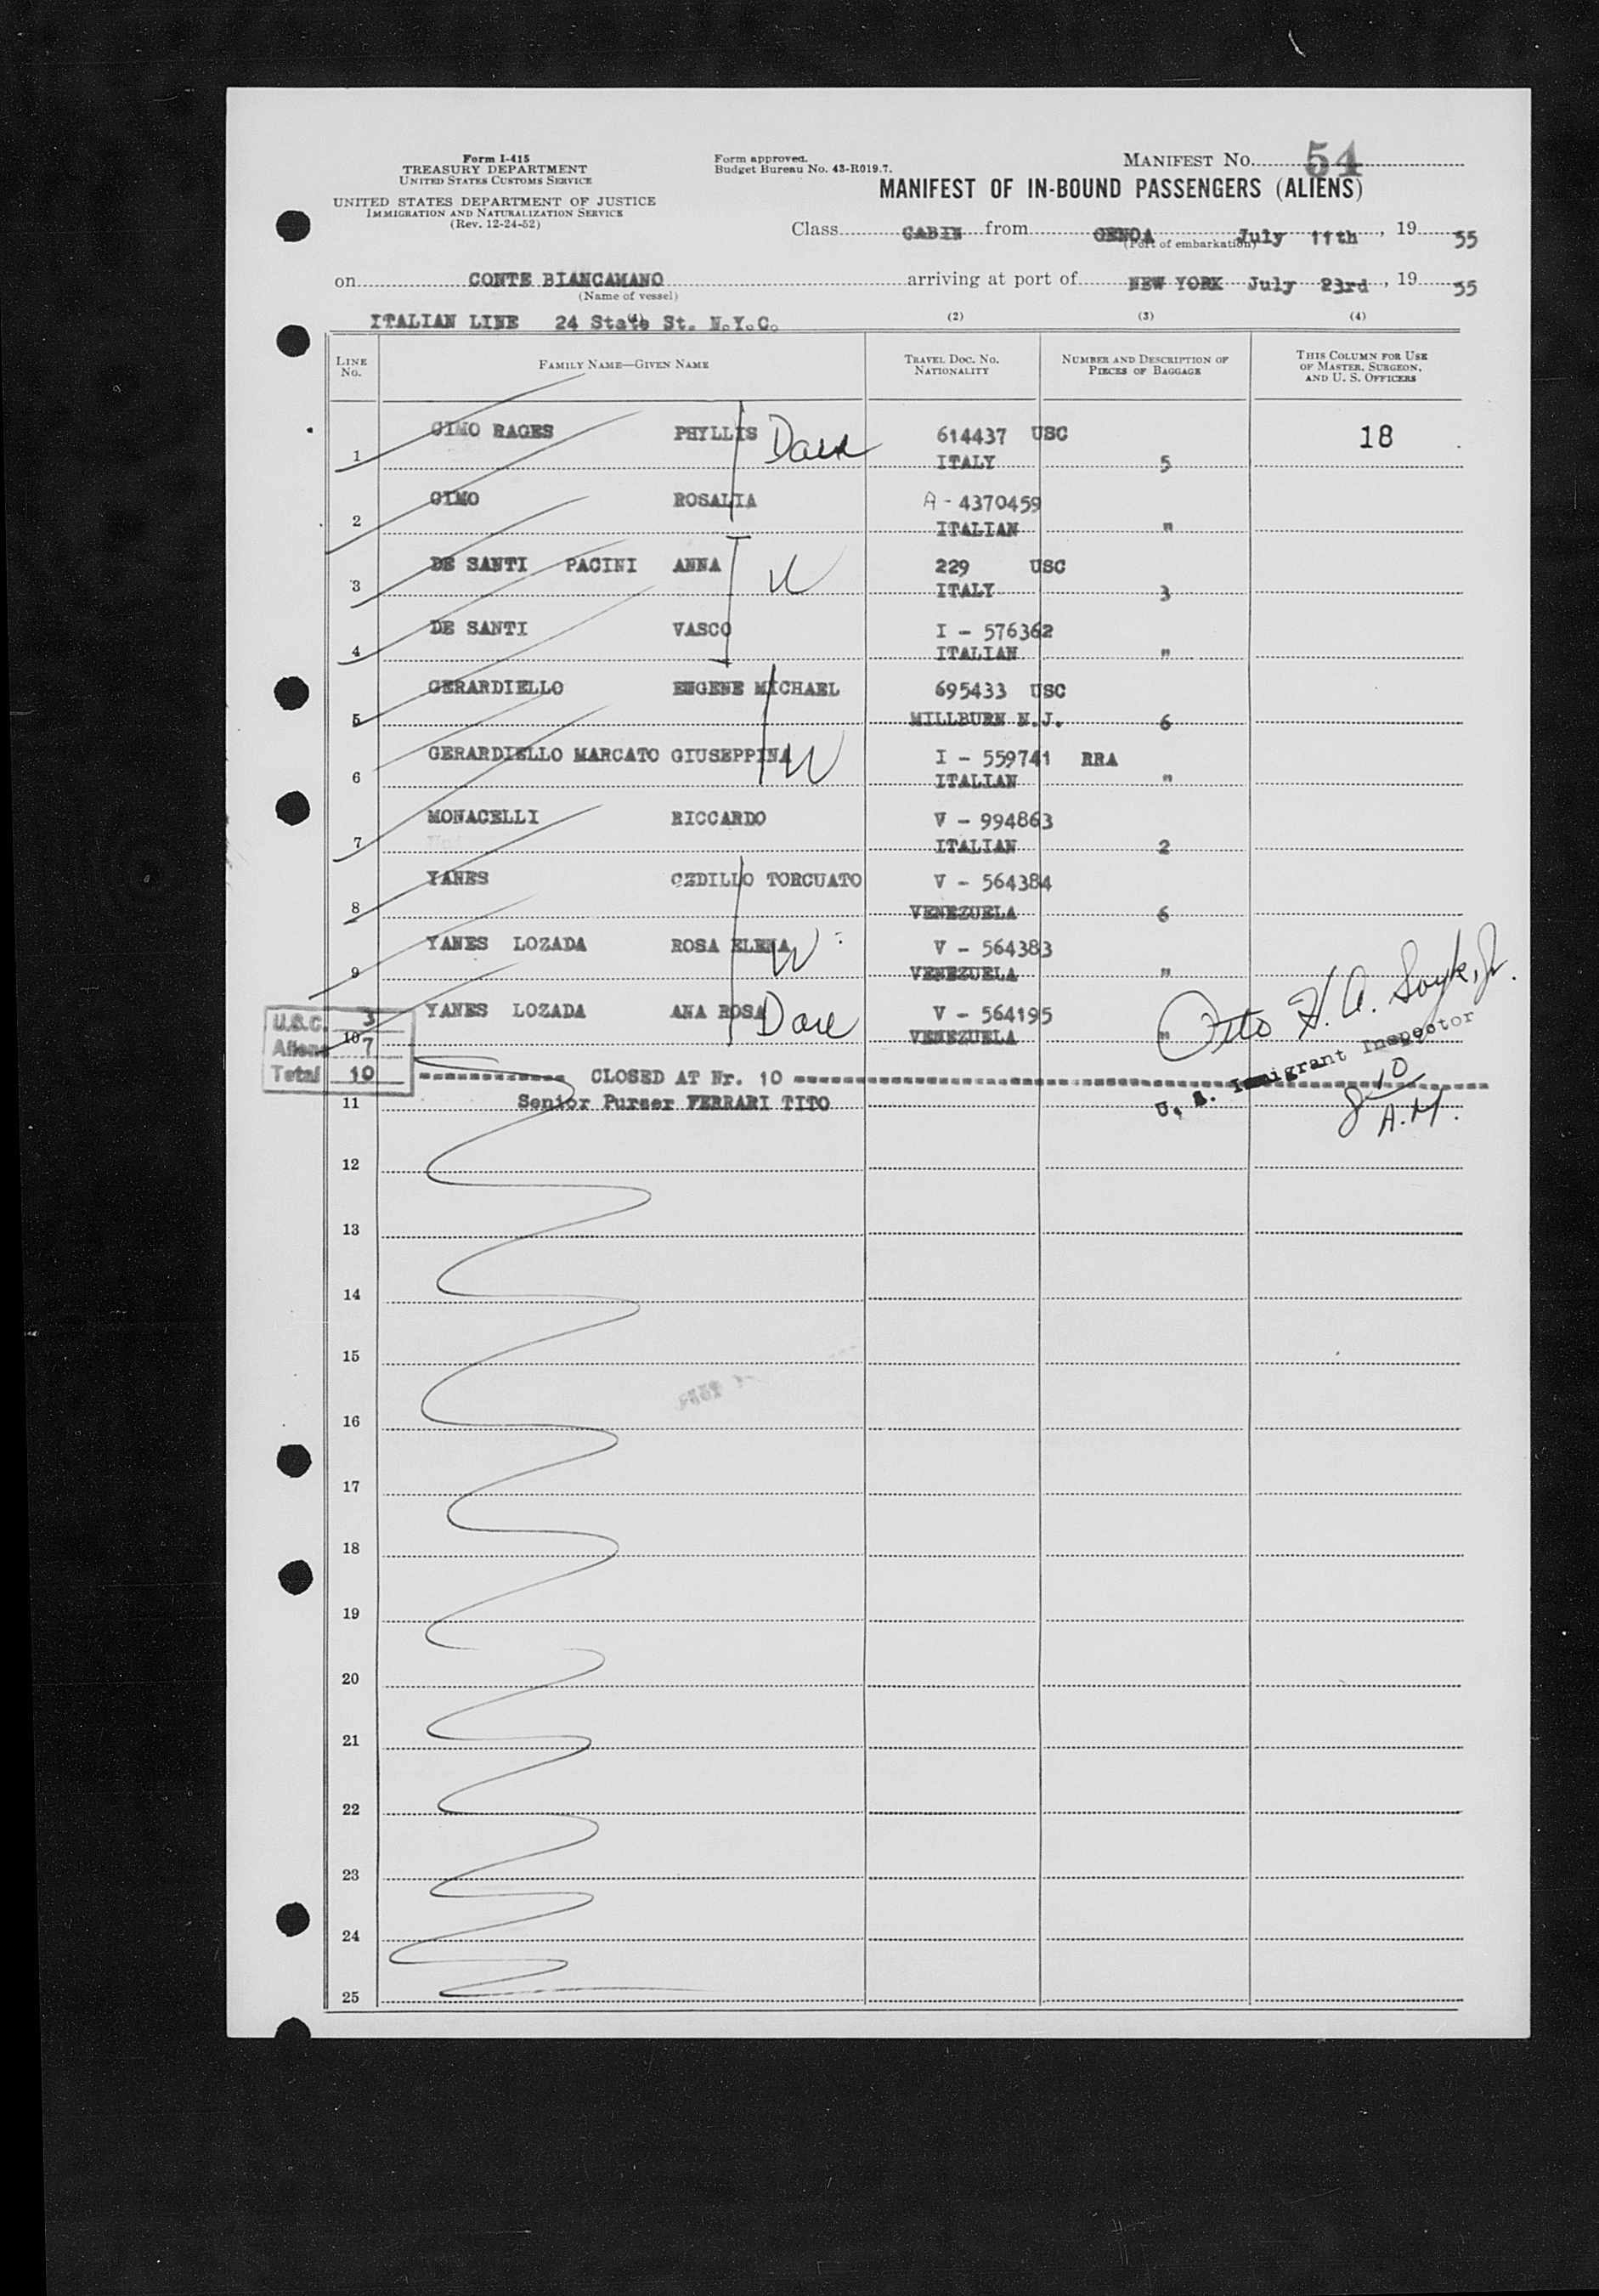 Form I-415
TREASURY DEPARTMENT
UNITED STATES CUSTOMS SERVICE
UNITED STATES DEPARTMENT OF JUSTICE
IMMIGRATION AND NATURALIZATION SERVICE
(Rev. 12-24-52)
Form approved.
Budget Bureau No. 43-R019.7.
MANIFEST NO. 54
MANIFEST OF IN-BOUND PASSENGERS (ALIENS)
Class CABIN from GENOA July 11th, 19 55
(Port of embarkation)
on CONTE BIANCAMANO arriving at port of NEW YORK July 23rd, 19 55
(Name of vessel)
ITALIAN LINE 24 State St. N.Y.C.
(1) (2) (3) (4)
LINE NO. FAMILY NAME—GIVEN NAME TRAVEL DOC. NO. NATIONALITY NUMBER AND DESCRIPTION OF PIECES OF BAGGAGE THIS COLUMN FOR USE OF MASTER, SURGEON, AND U. S. OFFICERS
1 GIMO RAGES PHYLLIS 614437 USC 18
ITALY 5
2 GIMO ROSALIA A - 4370459
ITALIAN "
3 DE SANTI PACINI ANNA 229 USC
ITALY 3
4 DE SANTI VASCO I - 576362
ITALIAN "
5 GERARDIELLO EUGENE MICHAEL 695433 USC
MILLBURN N.J. 6
6 GERARDIELLO MARCATO GIUSEPPINA W I - 559741 RRA
ITALIAN "
7 MONACELLI RICCARDO V - 994863
ITALIAN 2
8 YANES CEDILLO TORCUATO V - 564384
VENEZUELA 6
9 YANES LOZADA ROSA ELENA W V - 564383
VENEZUELA "
10 YANES LOZADA ANA ROSA V - 564195
VENEZUELA "
U.S.C. 3
Aliens 7
Total 10
CLOSED AT Nr. 10
Otto H. A.
U. S. Immigrant Inspector
8 10
A.M.
11 Senior Purser FERRARI TITO
12
13
14
15
16
17
18
19
20
21
22
23
24
25